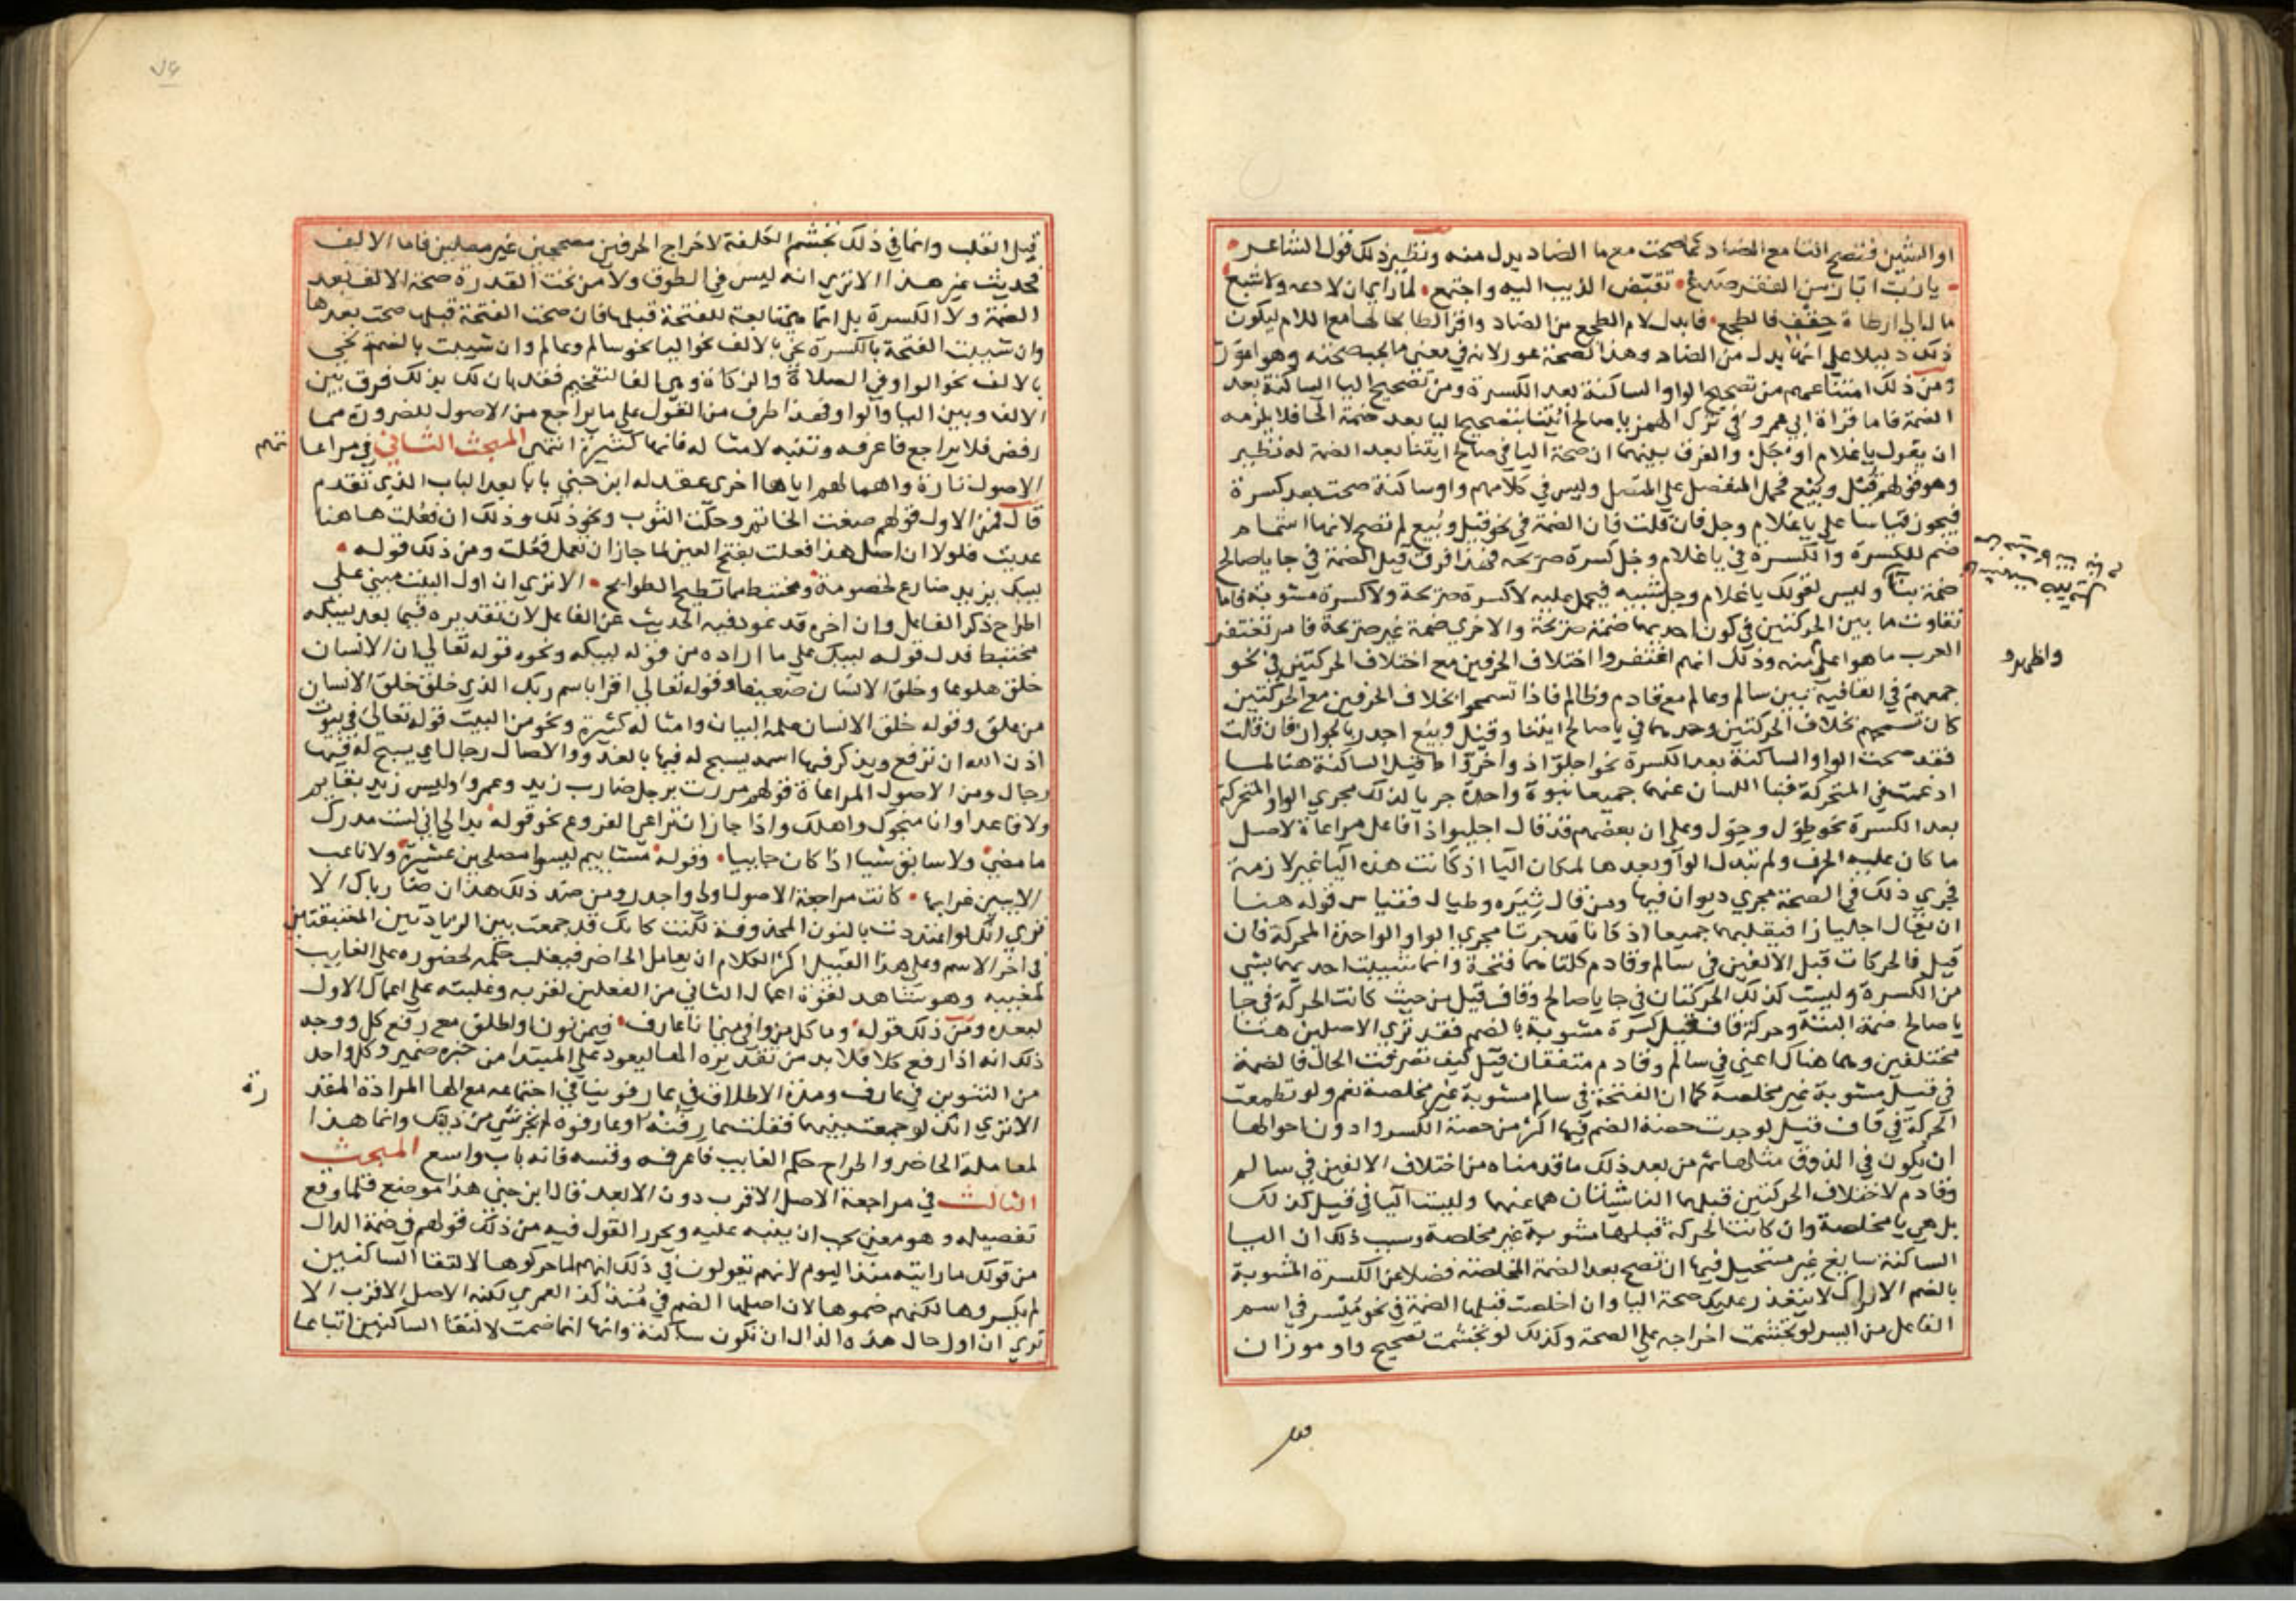 او الشين فتصح التا مع الضاد كما صحت مع ما الضاد بدل منه ونظير ذلك قول الشاعر
يا رب اباز من العفر صدع تقبض الذيب اليه واجتمع لما راي ان لا دعه ولا شبع
مال الي ارطاة حقف فالطجع فابدل لام الطجع من الضاد واقر الطا بحالها مع اللام ليكون
ذلك دليلا علي انها بدل من الضاد وهذا كصحة عور لانه في معني ما يجب صحته وهو اعور
ومن ذلك امتناعهم من تصحيح الواو الساكنة بعد الكسرة ومن تصحيح اليا الساكنة بعد
الضمة فاما قراة ابي عمرو في ترك الهمز يا صالح ايتنا بتصحيح اليا بعد ضمة الحا فلا يلزمه
ان يقول يا غلام اوجل والفرق بينهما ان صحة اليا في صالح ايتنا بعد الضمة له نظير
وهو قولهم قيل وبيع فحمل المنفصل علي المتصل وليس في كلامهم واو ساكنة صحت بعد كسرة
فيجوز قياسا علي يا غلام وجل فان قلت فان الضمة في نحو قيل وبيع لم تصح لانها اشمام
ضم للكسرة والكسرة في يا غلام وجل كسرة صريحة فهذا فرق قيل الضمة في حا يا صالح
ضمة بتا وليس لقولك يا غلام وجل شبيه فيحمل عليه لا كسرة صريحة ولا كسرة مشوبة فاما
تفاوت ما بين الحركتين في كون احديهما ضمة صريحة والاخري ضمة غير صريحة فامر تغتفر
العرب ما هو اعلي منه وذلك انهم اغتفروا اختلاف الحرفين مع اختلاف الحركتين في نحو
جمعهم في القافية بين سالم وعالم مع قادم وظالم فاذا تسمحوا بخلاف الحرفين مع الحركتين
كان تسمحهم بخلاف الحركتين وحديهما في يا صالح ايتنا وقيل وبيع اجدر بالجواز فان قالت
فقد صحت الواو الساكنة بعد الكسرة نحو اجلواذ واخرواط قيل الساكنة هنا لما
ادغمت في المتحركة فنبا اللسان عنهما جميعا نبوة واحدة جريا لذلك مجري الواو المتحركة
بعد الكسرة نحو طول وحول وعلي ان بعضهم قد قال اجليواذا فاعل مراعاة لاصل
ما كان عليه الحرف ولم تبدل الواو بعدها لمكان اليا اذ كانت هذه اليا غير لازمة
فجري ذلك في الصحة مجري ديوان فيها ومن قال ثيرة وطيال فقياس قوله هنا
ان يقال اجلياذا فيقلبهما جميعا اذ كانا قد جرتا مجري الواو الواحدة المحركة فان
قيل فالحركات قبل الالفين في سالم وقادم كلتاهما فتحة وانما شيبت احديهما بشي
من الكسرة وليست كذلك الحركتان في حا يا صالح وقاف قيل من حيث كانت الحركة في حا
يا صالح ضمة البتة وحركة قاف قيل كسرة مشوبة بالضم فقد تري الاصلين هنا
مختلفين وهما هناك اعني في سالم وقادم متفقان قيل كيف تصرفت الحال فالضمة
في قيل مشوبة غير مخلصة كما ان الفتحة في سالم مشوبة غير مخلصة نعم ولو تطعمت
الحركة في قاف قيل لوجدت حصة الضم فيها اكثر من حصة الكسر وادون احوالها
ان يكون في الذوق مثلها ثم من بعد ذلك ما قدمناه من اختلاف الالفين في سالم
وقادم لاختلاف الحركتين قبلهما الناشيتان هما عنهما وليست اليا في قيل كذلك
بل هي يا مخلصة وان كانت الحركة قبلها مشوبة غير مخلصة وسبب ذلك ان اليا
الساكنة سايغ غير مستحيل فيها ان تصح بعد الضمة المخلصة فضلا عن الكسرة المشوبة
بالضم الا تراك لا يتعذر عليك صحة اليا وان اخلصت قبلها الضمة في نحو ميسر في اسم
الفاعل من اليسر لو تجشمت اخراجه علي الصحة وكذلك لو تجشمت تصحيح واو موزان
واظهرو
قبل
٧٤
قبل القلب وانما في ذلك تجشم الكلفة لاخراج الحرفين مصححين غير معلين فاما الالف
فحديث غير هذا الا تري انه ليس في الطوق ولا من تحت القدرة صحة الالف بعد
الضمة ولا الكسرة بل انما هي تابعة للفتحة قبلها فان صحت الفتحة قبلها صحت بعدها
وان شيبت الفتحة بالكسرة نحي بالالف نحو اليا نحو سالم وعالم وان شيبت بالضمة نحي
بالالف نحو الواو في الصلاة والزكاة وهي الف التفخيم فقد بان لك بذلك فرق بين
الالف وبين اليا والواو فهذا طرف من القول علي ما يراجع من الاصول للضرورة مما
رفض فلا يراجع فاعرفه وتنبه لامثاله فانها كثيرة انتهي المبحث الثاني في مراعا
تهم
الاصول تارة واهمالهم اياها اخري عقد له ابن جني بابا بعد الباب الذي تقدم
قال فمن الاول قولهم صغت الخاتم وحكت الثوب ونحو ذلك وذلك ان فعلت هاهنا
عديت فلولا ان اصل هذا فعلت بفتح العين لما جاز ان تعمل فعلت ومن ذلك قوله
ليبك يزيد ضارع لخصومة ومختبط مما تطيح الطوايح الا تري ان اول البيت مبني علي
اطراح ذكر الفاعل وان اخره قد عود فيه الحديث عن الفاعل لان تقديره فيما بعد ليبكه
مختبط فدل قوله ليبك علي ما اراده من قوله ليبكه ونحوه قوله تعالي ان الانسان
خلق هلوعا وخلق الانسان ضعيفا وقوله تعالي اقرا باسم ربك الذي خلق خلق الانسان
من علق وقوله خلق الانسان علمه البيان وامثاله كثيرة ونحو من البيت قوله تعالي في بيوت
اذن الله ان ترفع ويذكر فيها اسمه يسبح له فيها بالغدو والاصال رجال اي يسبح له فيها
رجال ومن الاصول المراعاة قولهم مررت برجل ضارب زيد وعمروا وليس زيد بقايم
ولا قاعدا وانا منجوك واهلك واذا جاز ان تراعي الفروع نحو قوله بدا لي اني لست مدرك
ما مضي ولا سابق شيا اذا كان جاييا وقوله مشاييم ليسوا مصلحين عشيرة ولا ناعب
الا ببين غرابها كانت مراجعة الاصول اولي واجدر ومن ضد ذلك هذان ضارباك الا
تري انك لو اعتددت بالنون المحذوفة لكنت كانك قد جمعت بين الزيادتين المعتقبتين
في اخر الاسم وعلي هذا القبيل اكثر الكلام ان يعامل الحاضر فيغلب حكمه لحضوره علي الغايب
لمغيبه وهو شاهد لقوة اعمال الثاني من الفعلين لقربه وغلبته علي اعمال الاول
لبعده ومن ذلك قوله وما كل من وافي منى انا عارف فيمن نون او اطلق مع رفع كل ووجه
ذلك انه اذا رفع كلا فلا بد من تقديره الها ليعود علي المبتدا من خبره ضمير وكل واحد
من التنوين في عارف ومدة الاطلاق في عارفو ينافي اجتماعه مع الها المرادة المقد
رة
الا تري انك لو جمعت بينهما فقلت عارفنه او عارفوه لم يجز شي من ذلك وانما هذا
لمعاملة الحاضر واطراح حكم الغايب فاعرفه وقسه فانه باب واسع المبحث
الثالث في مراجعة الاصل الاقرب دون الابعد قال ابن جني هذا موضع قلما وقع
تفصيله وهو معني يجب ان ينبه عليه ويحرر القول فيه من ذلك قولهم في ضمة الذال
من قولك ما رايته منذ اليوم لانهم يقولون في ذلك انهم لما حركوها لالتقا الساكنين
لم يكسروها لكنهم ضموها لان اصلها الضم في منذ كذا لعمري لكنه الاصل الاقرب الا
تري ان اول حال هذه الذال ان تكون ساكنة وانها انما ضمت لالتقا الساكنين اتباعا